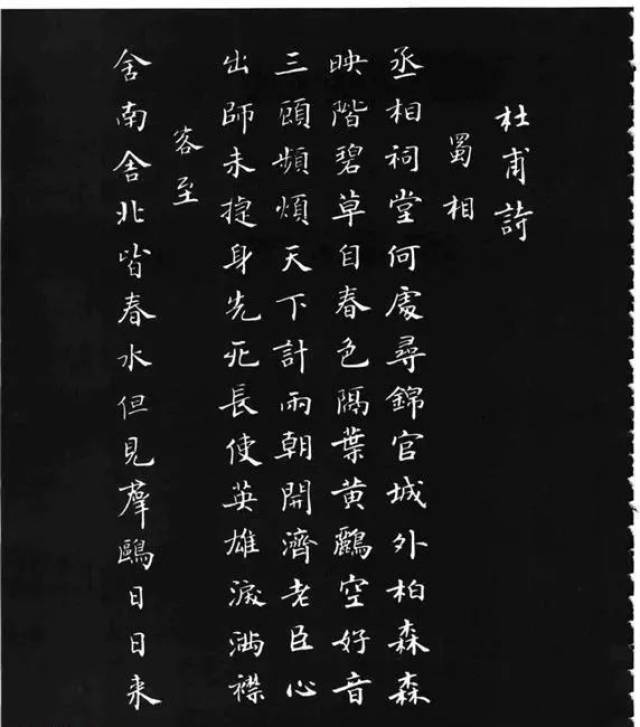 杜甫詩
蜀相
丞相祠堂何處尋錦官城外柏森森
映階碧草自春色隔葉黃鸝空好音
三顧頻煩天下計兩朝開濟老臣心
出師未捷身先死長使英雄淚滿襟
客至
舍南舍北皆春水但見羣鷗日日来